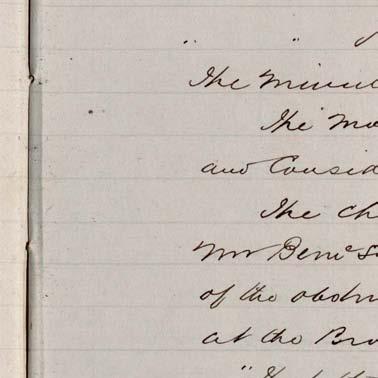 " "
The Minu
The Mo
and Consid
The Ch
Mr Benj. S
of the obstru
at the Bro
"